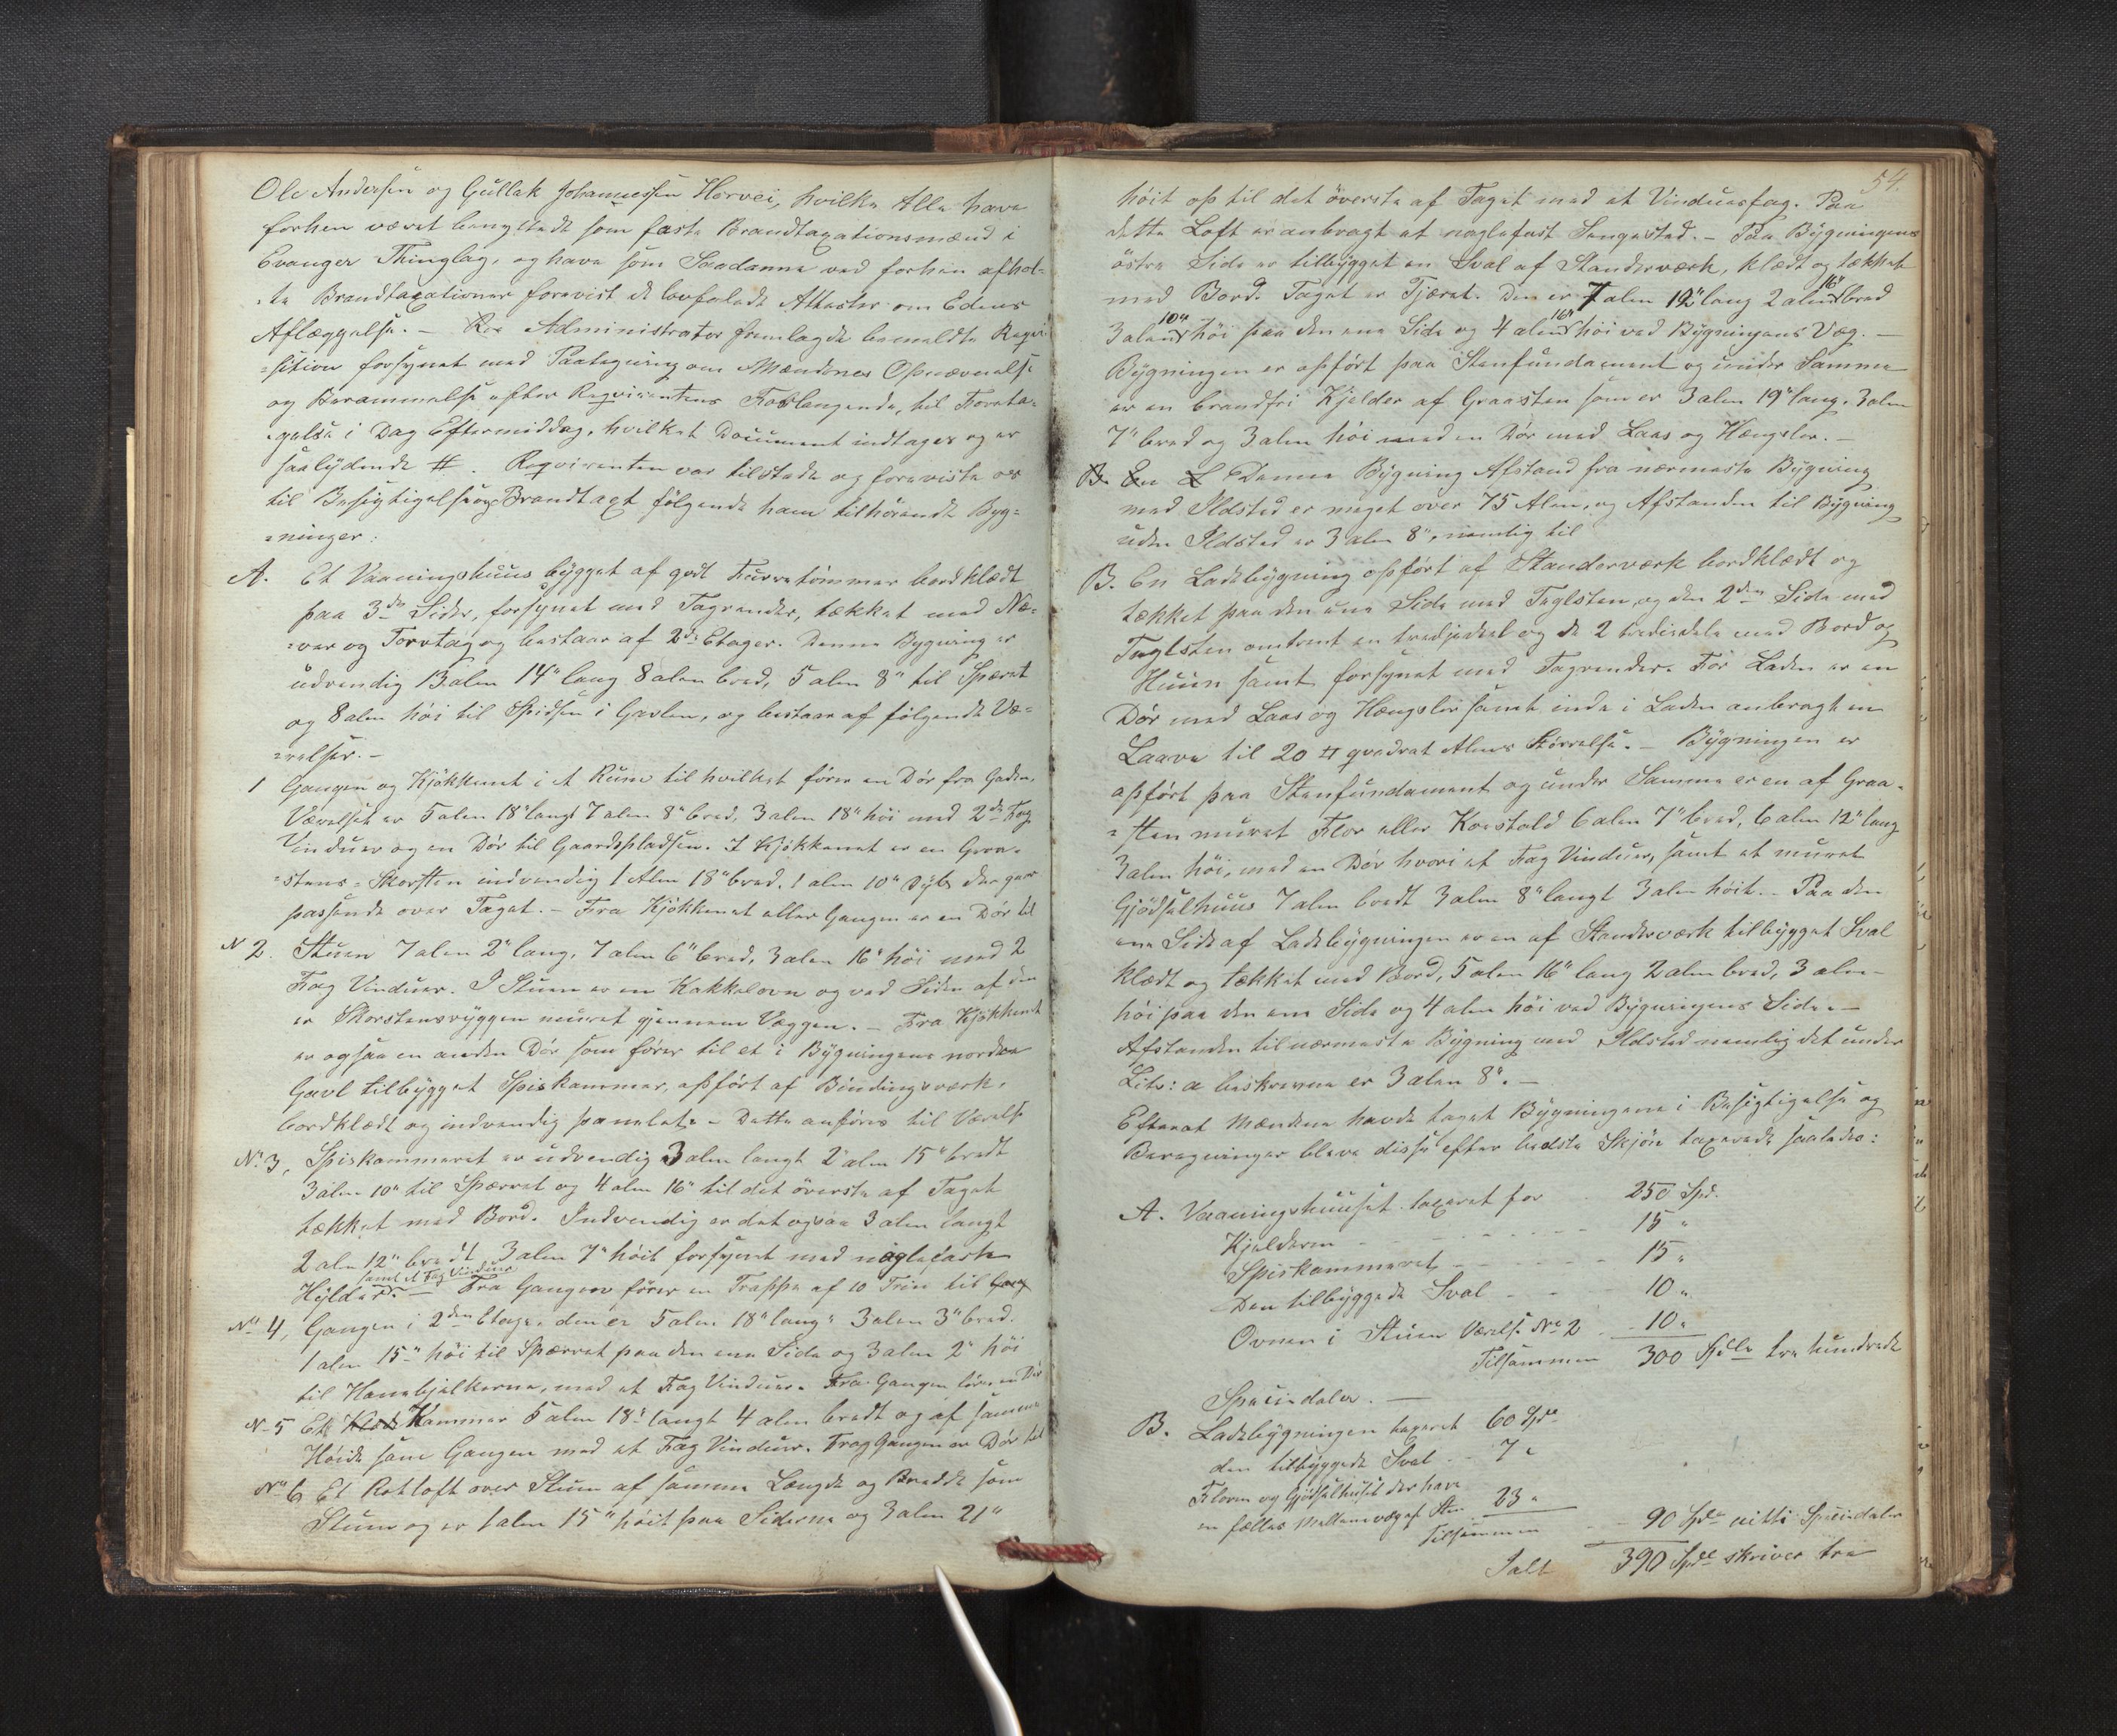 Ole Andersen og Gullak Johannessen Horvei, hvilke Alle have
forhen været benyttede som faste Brandtaxationsmænd i
Evanger Thinglag, og have som Saadanne ved forhen afhol-
te Brandtaxationer forevist de lovbefalede Attester om Edens
Aflæggelse. — Administrator fremlagde bemeldte Reqvi-
=sition forsynet med Paategning om Mændenes Opnævnelse
og Berammelse efter Reqvirentens Forlangende, til Foreta-
=gelse i Dag Eftermiddag, hvilket Document indtages og er
saalydende #. Reqvirenten var tilstede og foreviste os
til Besigtigelse og Brandtaxt følgende ham tilhørende Byg=
=ninger:
A. Et Vaaningshuus bygget af godt Furretømmer bordklædt
paa 3de Sider, forsynet med Tagrender, tækket med Næ=
=ver og Torvtag og bestaar af 2de Etager. Denne Bygning er
udvendig 13 alen 14" lang 8 alen bred, 5 alen 8" til Spærret
og 8 alen høi til Spidsen i Gavlen, og bestaar af følgende Væ=
=relser. —
1 Gangen og Kjøkkenet i et Rum til hvilket fører en Dør fra Gaden.
Værelset er 5 alen 18" langt 7 alen 8" bred, 3 alen 18" høi med 2de Fag
Vinduer og en Dør til Gaardspladsen. I Kjøkkenet er en Graa-
=steens=Skorsten indvendig 1 Alen 18" bred, 1 alen 10" dyb der gaar
passende over Taget. — Fra Kjøkkenet eller Gangen er en Dør til
N 2. Stuen 7 alen 2" lang, 7 alen 6" bred, 3 alen 16" høi med 2
Fag Vinduer. I Stuen er en Kakkelovn og ved Siden af den
er Skorstensryggen muret gjennem Væggen. — Fra Kjøkkenet
er ogsaa en anden Dør som fører til et i Bygningens nordre
Gavl tilbygget Spiskammer, opført af Bindingsværk,
bordklædt og indvendig panelet. — Dette anføres til Værelse
No 3, Spiskammeret er udvendig 3 alen langt 2 alen 15" bredt
3 alen 10" til Spærret og 4 alen 16" til det øverste af Taget
tækket med Bord. Indvendig er det ogsaa 3 alen langt
2 alen 12" bredt 3 alen 7" høit forsynet med naglefaste
samt et Fag Vinduer
Hylder. — Fra Gangen fører en Trappe af 10 Trin til Gang
No 4, Gangen i 2den Etage. den er 5 alen 18" lang: 3 alen 3" bred.
1 alen 15" høi til Spærret paa den ene Side og 3 alen 2" høi
til Hanebjelkerne, med et Fag Vinduer. Fra Gangen fører en Dør
No 5 Et Kammer 5 alen 18" langt 4 alen bredt og af samme
Høide som Gangen med et Fag Vinduer. Fra Gangen er Dør til
No 6 Et Rotloft over Stuen af samme Længde og Bredde som
Stuen og er 1 alen 15" høit paa Siderne og 3 alen 21"
54.
høit op til det øverste af Taget med et Vinduesfag. Paa
dette Loft er anbragt et naglefast Sengested. — Paa Bygningens
østre Side er tilbygget en Sval af Standerværk, klædt og tækket
med Bord. Taget er Tjæret. Den er 7 alen 12" lang 2 alen 16" bred
3 alen 10" høi paa den ene Side og 4 alen 16" høi ved Bygningens Væg. —
Bygningen er opført paa Stenfundament og under Samme
er en brandfri Kjelder af Graasten som er 3 alen 19" lang, 3 alen
7" bred og 3 alen høi med en Dør med Laas og Hængsler. —
B. En L Denne Bygning Afstand fra nærmeste Bygning
med Ildsted er meget over 75 Alen, og Afstanden til Bygning
uden Ildsted er 3 alen 8", nemlig til
B. En Ladebygning opført af Standerværk bordklædt og
tækket paa den ene Side med Taglsten, og den 2den Side med
Taglsten omtrent en tredjedeel og de 2 tredjedele med Bord og
samt forsynet med Tagrender. For Laden er en
Dør med Laas og Hængsler samt inde i Laden anbragt en
Laave til 20 qvadrat Alens Størrelse. — Bygningen er
opført paa Stenfundament og under Samme er en af Graa-
=sten muret Flor eller Kostald 6 alen 7" bred, 6 alen 12" lang
3 alen høi, med en Dør hvori et Fag Vinduer, samt et muret
Gjødselhuus 7 alen bredt 3 alen 8" langt 3 alen høit. — Paa den
ene Side af Ladebygningen er en af Standerværk tilbygget Sval
klædt og tækket med Bord, 5 alen 16" lang 2 alen bred, 3 alen
høi paa den ene Side og 4 alen høi ved Bygningens Side. —
Afstanden til nærmeste Bygning med Ildsted nemlig det under
Litr: a beskrevne er 3 alen 8". —
Efterat Mændene havde taget Bygningerne i Besigtigelse og
Beregninger bleve disse efter bedste Skjøn taxerede saaledes:
A. Vaaningshuuset taxeret for 250 Spd.
Kjelderen 15 "
Spiskammeret 15 "
Den tilbyggede Sval 10 "
Ovnen i Stuen Værelse No 2 10 "
Tilsammen 300 Spdlr tre hundrede
Speciedaler. —
B. Ladebygningen taxeret 60 Spd
den tilbyggede Sval 7 "
Floren og Gjødselhuset der have
en fælles Mellemvæg af Sten 23 "
Tilsammen 90 Spd nitti Speciedaler
Ialt 390 Spd skriver tre